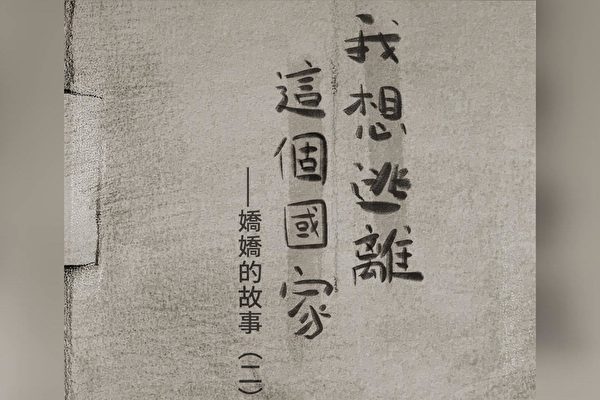 我想逃離
這個國家
——嬌嬌的故事（二）